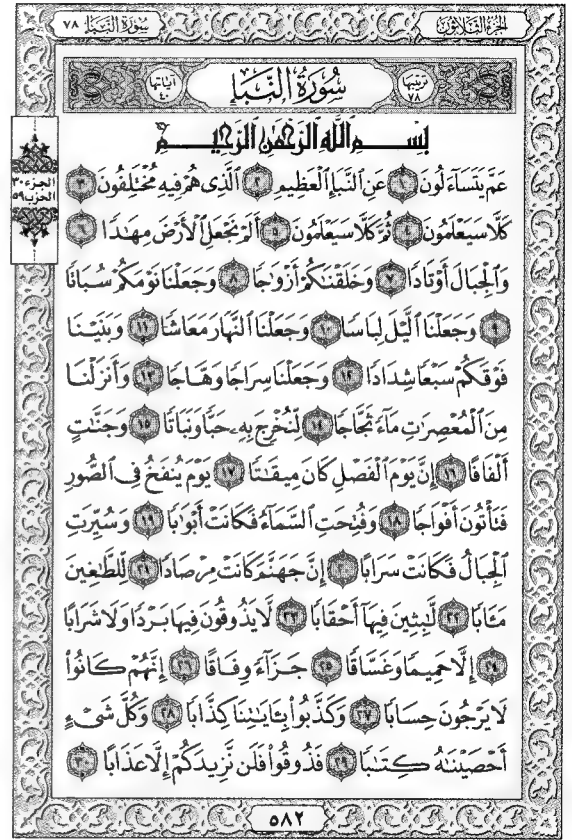 الجزء الثلاثون سورة النبإ ٧٨
ترتيبها ٧٨ سُورَةُ النَّبَإِ آياتها ٤٠
بِسْمِ ٱللَّهِ ٱلرَّحْمَٰنِ ٱلرَّحِيمِ
الجزء ٣٠
الحزب ٥٩
عَمَّ يَتَسَآءَلُونَ ١ عَنِ ٱلنَّبَإِ ٱلْعَظِيمِ ٢ ٱلَّذِى هُمْ فِيهِ مُخْتَلِفُونَ ٣
كَلَّا سَيَعْلَمُونَ ٤ ثُمَّ كَلَّا سَيَعْلَمُونَ ٥ أَلَمْ نَجْعَلِ ٱلْأَرْضَ مِهَٰدًا ٦
وَٱلْجِبَالَ أَوْتَادًا ٧ وَخَلَقْنَٰكُمْ أَزْوَٰجًا ٨ وَجَعَلْنَا نَوْمَكُمْ سُبَاتًا
٩ وَجَعَلْنَا ٱلَّيْلَ لِبَاسًا ١٠ وَجَعَلْنَا ٱلنَّهَارَ مَعَاشًا ١١ وَبَنَيْنَا
فَوْقَكُمْ سَبْعًا شِدَادًا ١٢ وَجَعَلْنَا سِرَاجًا وَهَّاجًا ١٣ وَأَنزَلْنَا
مِنَ ٱلْمُعْصِرَٰتِ مَآءً ثَجَّاجًا ١٤ لِّنُخْرِجَ بِهِۦ حَبًّا وَنَبَاتًا ١٥ وَجَنَّٰتٍ
أَلْفَافًا ١٦ إِنَّ يَوْمَ ٱلْفَصْلِ كَانَ مِيقَٰتًا ١٧ يَوْمَ يُنفَخُ فِى ٱلصُّورِ
فَتَأْتُونَ أَفْوَاجًا ١٨ وَفُتِحَتِ ٱلسَّمَآءُ فَكَانَتْ أَبْوَٰبًا ١٩ وَسُيِّرَتِ
ٱلْجِبَالُ فَكَانَتْ سَرَابًا ٢٠ إِنَّ جَهَنَّمَ كَانَتْ مِرْصَادًا ٢١ لِّلطَّٰغِينَ
مَـَٔابًا ٢٢ لَّٰبِثِينَ فِيهَآ أَحْقَابًا ٢٣ لَّا يَذُوقُونَ فِيهَا بَرْدًا وَلَا شَرَابًا
٢٤ إِلَّا حَمِيمًا وَغَسَّاقًا ٢٥ جَزَآءً وِفَاقًا ٢٦ إِنَّهُمْ كَانُوا۟
لَا يَرْجُونَ حِسَابًا ٢٧ وَكَذَّبُوا۟ بِـَٔايَٰتِنَا كِذَّابًا ٢٨ وَكُلَّ شَىْءٍ
أَحْصَيْنَٰهُ كِتَٰبًا ٢٩ فَذُوقُوا۟ فَلَن نَّزِيدَكُمْ إِلَّا عَذَابًا ٣٠
٥٨٢